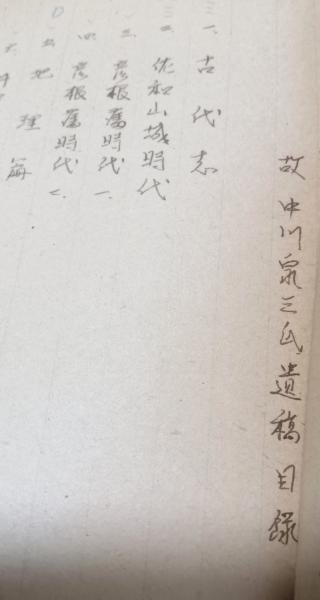 故中川泉三氏遺稿目録
一、古代志
二、佐和山城時代
三、彦根舊時代 一、
四、彦根舊時代 二、
五、地理篇